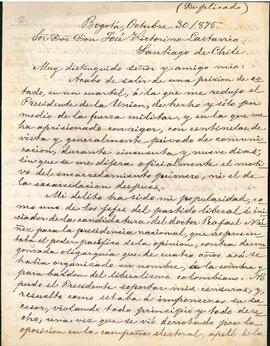 (Duplicado)
Bogotá, Octubre 30/1875.
Sor Dor Don José Victorino Lastarria.
Santiago de Chile.
Muy distinguido señor y amigo mio:
Acabo de salir de una prision de es-
tado, en un cuartel, á la que me redujo el
Presidente de la Union, de hecho y sólo por
medio de la fuerza militar, y en la que me
ha aprisionado con rigor, con centinelas de
vista y generalmente privado de comuni-
cacion, durante cincuenta y nueve dias,
sin que se me dijera oficialmente el moti-
vo del encarcelamiento primero, ni el de
la excarcelacion despues.
Mi delito ha sido mi popularidad, co-
mo uno de los jefes del partido liberal é ini-
ciador de la candidatura del doctor Rafael Nú-
ñez para la presidencia nacional, que represen-
taba el poder pacífico de la opinion, contra la ver-
gonzada oligarquia que de cuatro años acá se
habia organizado en nombre, á la sombra y
para baldon del liberalismo colombiano. No
pudo el Presidente soportar mis censuras, y
resuelto como estaba á imponernos su suce-
sor, violando todo principio y todo dere-
cho, una vez que se vió derrotado por la
oposicion en la campaña electoral, apeló á la